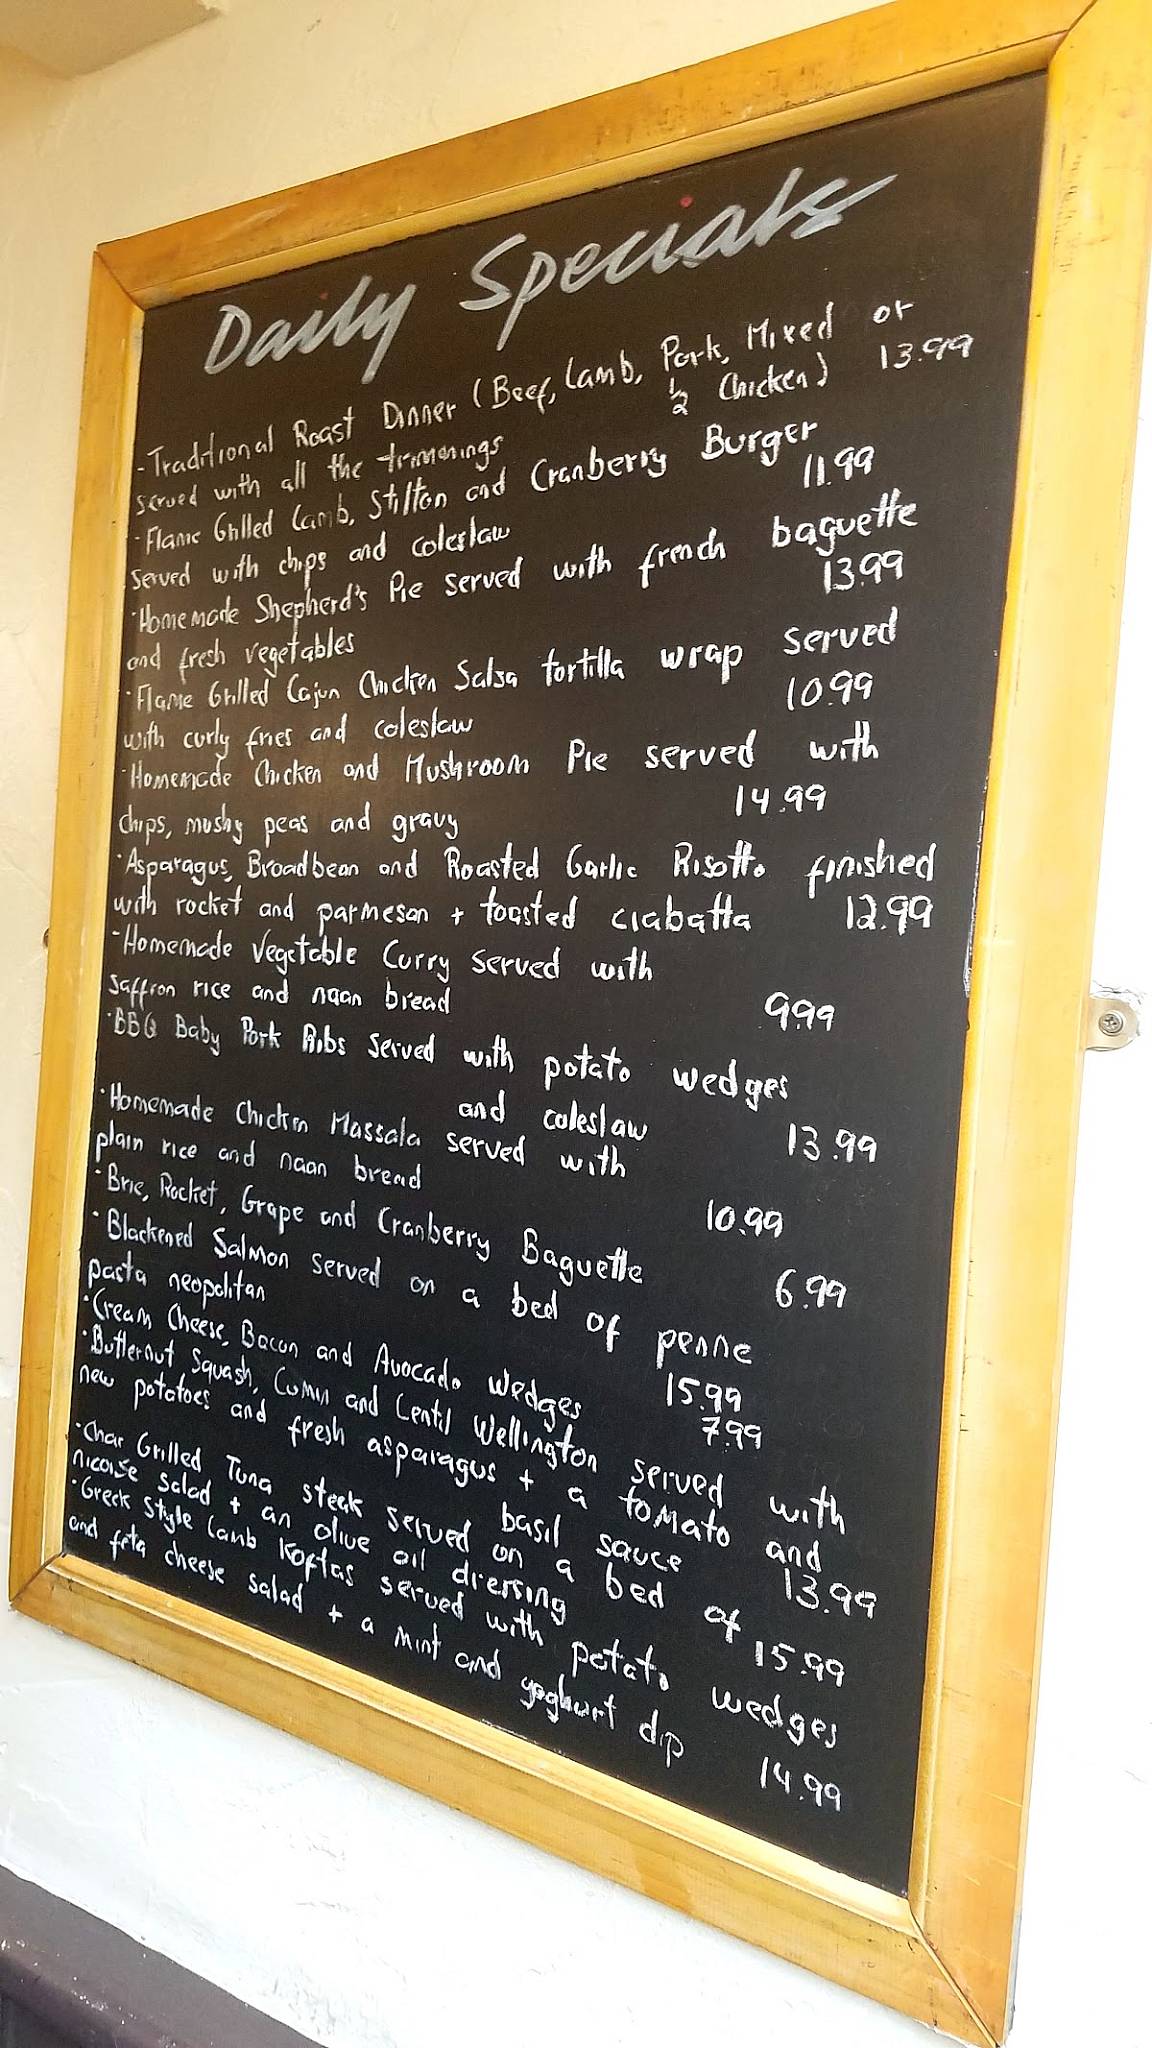 Daily Specials
- Traditional Roast Dinner (Beef, Lamb, Pork, Mixed or
½ Chicken) 13.99
served with all the trimmings
· Flame Grilled Lamb, Stilton and Cranberry Burger
11.99
served with chips and coleslaw
· Homemade Shepherd's Pie served with french baguette
13.99
and fresh vegetables
· Flame Grilled Cajun Chicken Salsa tortilla wrap served
10.99
with curly fries and coleslaw
· Homemade Chicken and Mushroom Pie served with
14.99
chips, mushy peas and gravy
· Asparagus, Broadbean and Roasted Garlic Risotto finished
with rocket and parmesan + toasted ciabatta 12.99
· Homemade Vegetable Curry served with
saffron rice and naan bread 9.99
· BBQ Baby Pork Ribs served with potato wedges
and coleslaw 13.99
· Homemade Chicken Massala served with
plain rice and naan bread 10.99
· Brie, Rocket, Grape and Cranberry Baguette 6.99
· Blackened Salmon served on a bed of penne
pasta neopolitan 15.99
· Cream Cheese, Bacon and Avocado wedges 7.99
· Butternut Squash, Cumin and Lentil Wellington served with
new potatoes and fresh asparagus + a tomato and
basil sauce 13.99
· Char Grilled Tuna steak served on a bed of
nicoise salad + an olive oil dressing 15.99
· Greek Style Lamb Koftas served with potato wedges
and feta cheese salad + a mint and yoghurt dip 14.99